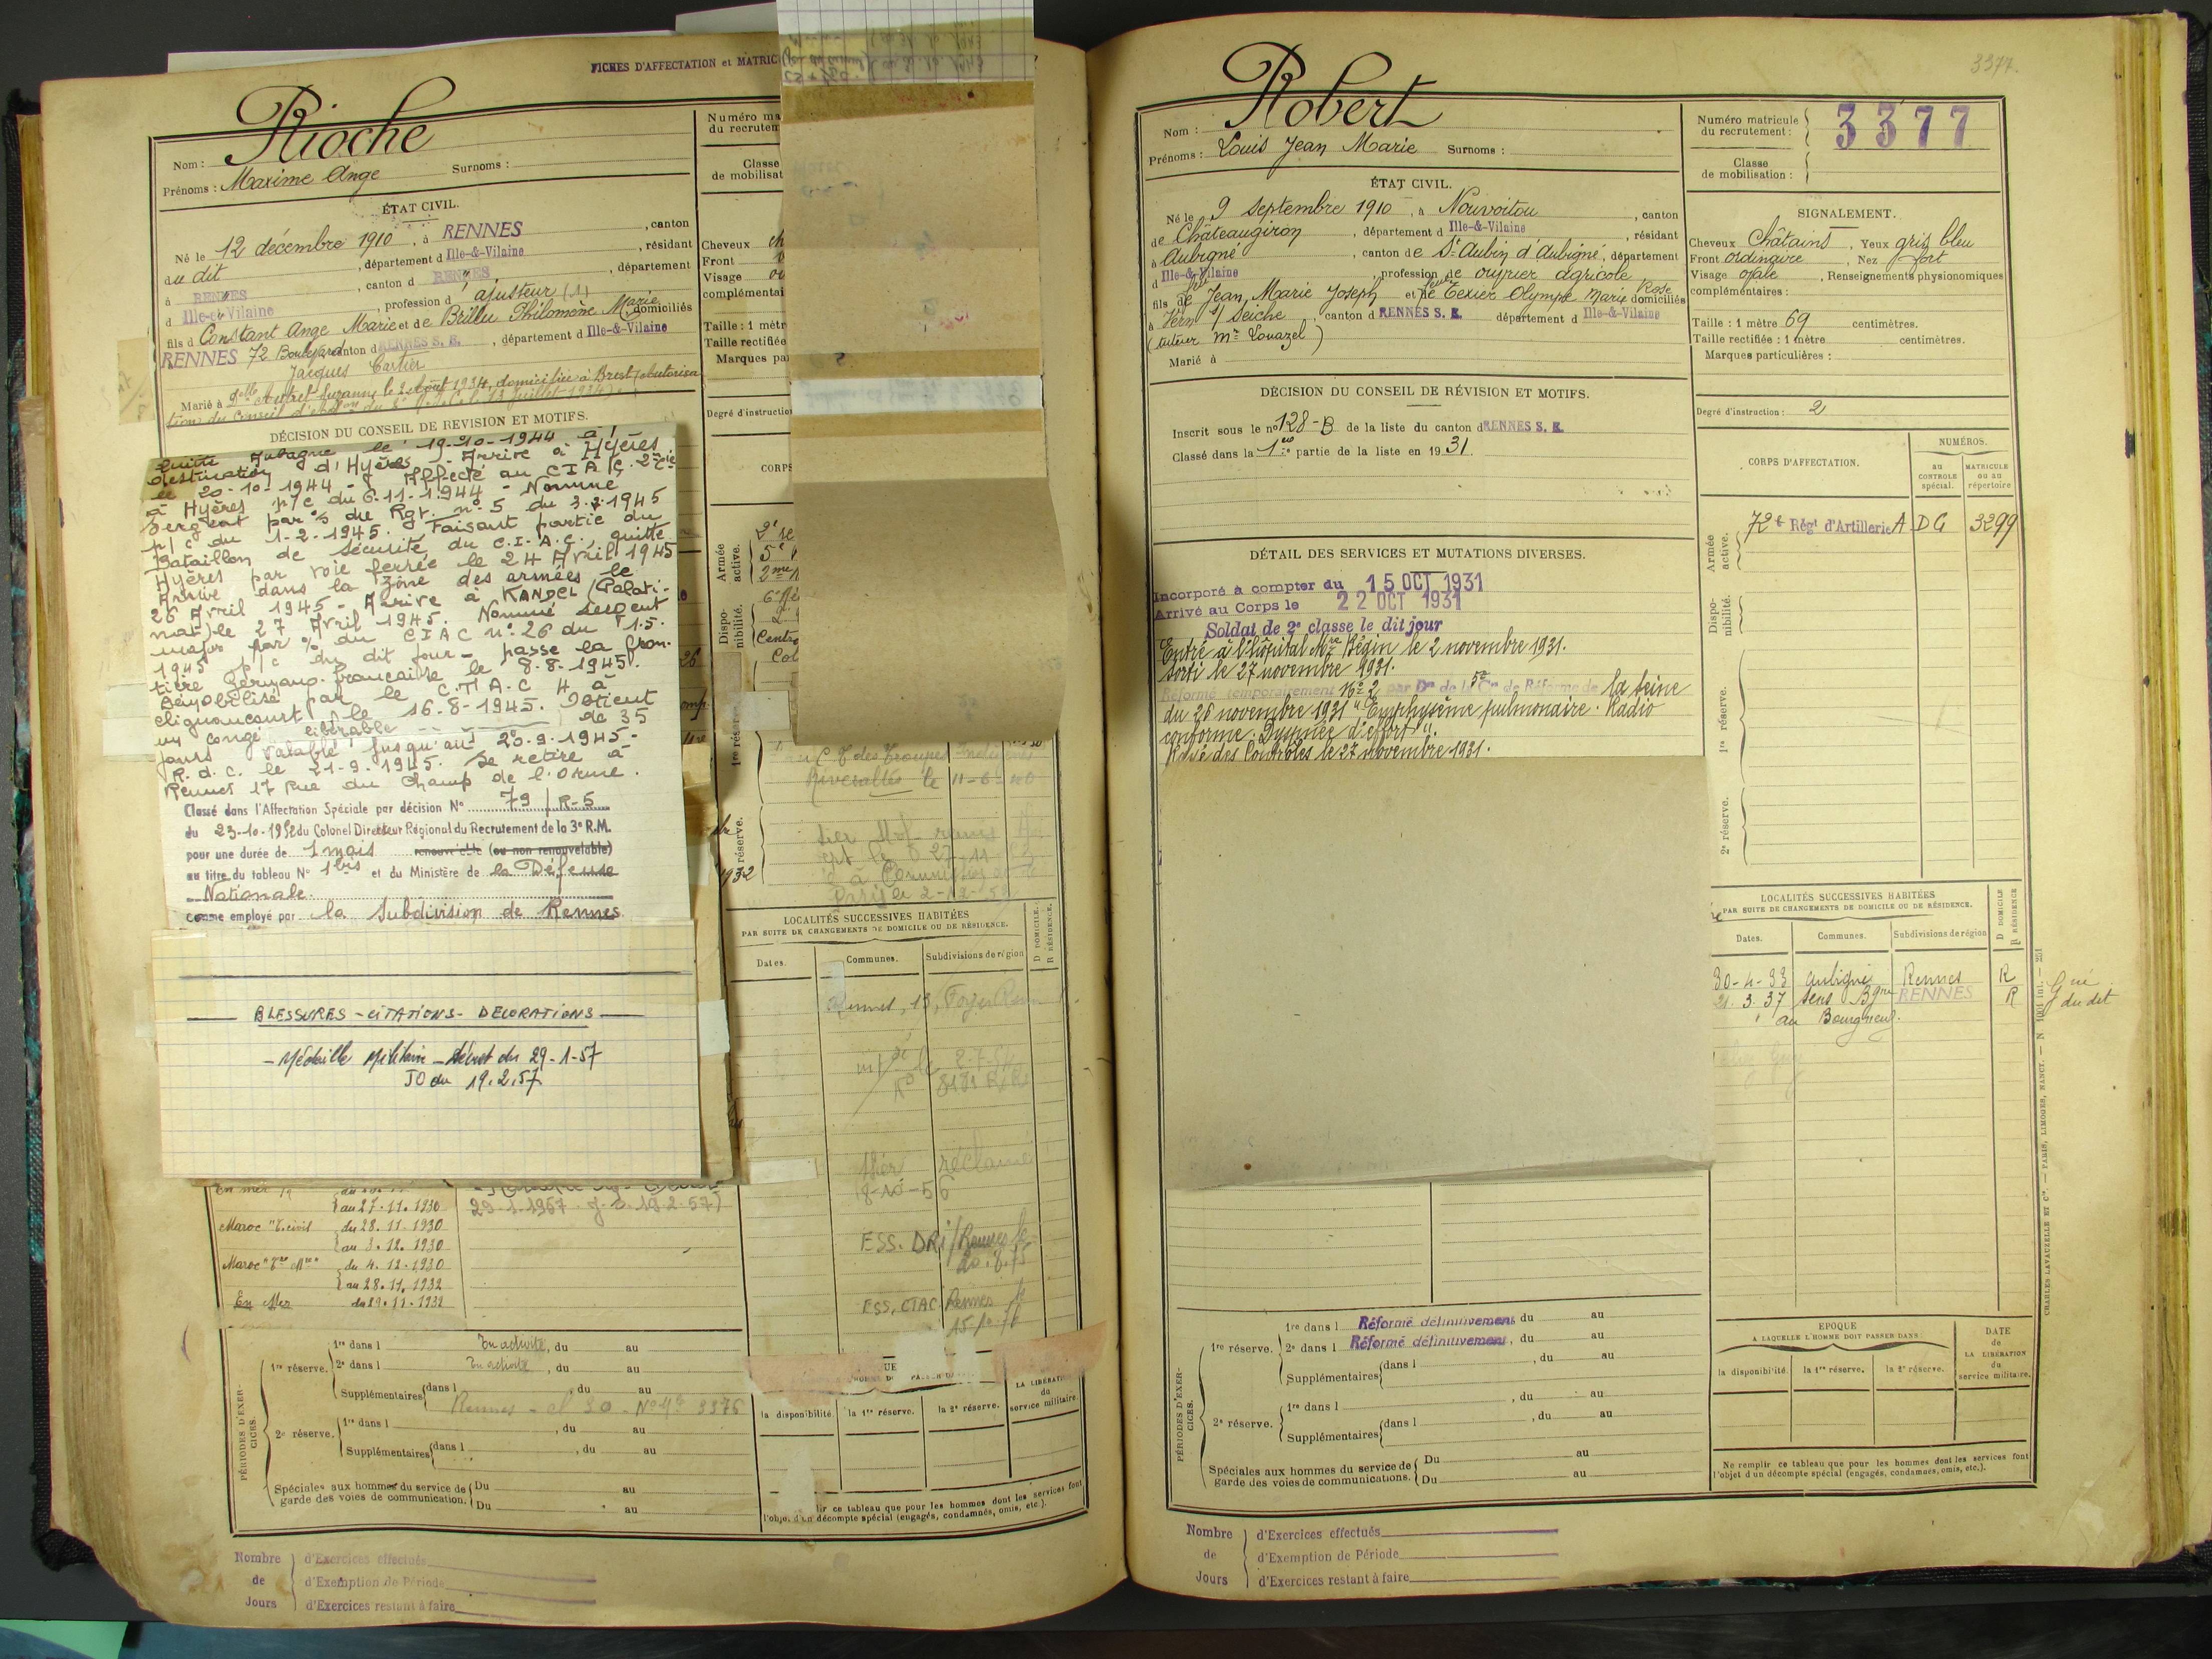 FICHES D'AFFECTATION et MATRIC
Nom : Rioche
Prénoms : Maxime Ange Surnoms :
ÉTAT CIVIL.
Né le 12 décembre 1910, à RENNES, canton
du dit, département d Ille-&-Vilaine, résidant
à RENNES, canton d RENNES, département
d Ille-et-Vilaine, profession d ajusteur (1)
fils d Constant Ange Marie et de Brillu Philomène Marie domiciliés
RENNES 72 Boulevard canton d RENNES S. E., département d Ille-&-Vilaine
Jacques Cartier
Marié à Delle Auffret Suzanne le 2 Août 1934, domiciliée à Brest (autorisa
DÉCISION DU CONSEIL DE REVISION ET MOTIFS.
Quitte Aubagne le 19-10-1944 à
destination d'Hyères - Arrive à Hyères
le 20-10-1944 - Affecté au CIAC. 2e Cie
à Hyères p/c du 6-11-1944 - Nommé
Sergent par % du Rgt. n° 5 du 3.2.1945
p/c du 1-2-1945. Faisant partie du
Bataillon de sécurité du C.I.A.C., quitte
Hyères par voie ferrée le 24 Avril 1945
Arrive dans la zône des armées le
26 Avril 1945 - Arrive à KANDEL (Palati-
nat) le 27 Avril 1945. Nommé sergent
major par % du CIAC n° 26 du 1.5.
1945 p/c du dit jour - passe la fron-
tière Germano-française le 8.8.1945.
Démobilisé par le C.T.A.C 4 à
clignancourt, le 16-8-1945. Obtient
un congé libérable de 35
jours valable jusqu'au 20-9-1945-
R.d.c. le 21-9-1945. Se retire à
Rennes 17 Rue du Champ de l'Orme.
Classé dans l'Affectation Spéciale par décision N° 79 / R-5
du 23-10-1952 du Colonel Directeur Régional du Recrutement de la 3e R.M.
pour une durée de 1 mois renouvelable (ou non renouvelable)
au titre du tableau N° 1 bis et du Ministère de la Défense
Nationale.
comme employé par la Subdivision de Rennes
BLESSURES - CITATIONS - DECORATIONS
- Médaille Militaire - Décret du 29-1-57
JO du 19.2.57
au 27.11.1930
29-1-1957 J.O. 19-2-57)
Maroc "T. civil du 28.11.1930
au 3.12.1930
du 4.12.1930
au 28.11.1932
En Mer du 29.11.1932
PÉRIODES D'EXERCICES.
1re réserve. 1re dans l En activité, du au
2e dans l En activité, du au
Supplémentaires dans l , du au
Rennes - cl 30 - N° Mle 3376
2e réserve. 1re dans l , du au
Supplémentaires dans l , du au
Spéciales aux hommes du service de garde des voies de communication. Du au
Du au
Nombre de Jours
d'Exercices effectués
d'Exemption de Période
d'Exercices restant à faire
Numéro ma
du recrutem
Classe
de mobilisat
Cheveux ch
Front
Visage ov
complémentai
Taille : 1 mètr
Taille rectifiée
Marques pa
Degré d'instructio
CORPS
Armée active.
Dispo-nibilité.
1re réser
réserve.
1932
Rivesaltes le 11-6-40
LOCALITÉS SUCCESSIVES HABITÉES
PAR SUITE DE CHANGEMENTS DE DOMICILE OU DE RÉSIDENCE.
D DOMICILE.
R RÉSIDENCE.
Dates. Communes. Subdivisions de région
réclamé
18-10-56
ESS. DRI/Rennes le
ESS. CTAC Rennes le
la disponibilité. la 1re réserve. la 2e réserve. LA LIBÉRATION du service militaire.
lir ce tableau que pour les hommes dont les services font
l'objet d'un décompte spécial (engagés, condamnés, omis, etc.).
3377.
Nom : Robert
Prénoms : Louis Jean Marie Surnoms :
Numéro matricule du recrutement : 3377
Classe de mobilisation :
ÉTAT CIVIL.
Né le 9 Septembre 1910, à Nouvoitou, canton
de Châteaugiron, département d Ille-&-Vilaine, résidant
à Aubigné, canton de St Aubin d'Aubigné, département
d Ille-&-Vilaine, profession de ouvrier agricole
fils de feu Jean Marie Joseph et de feue Texier Olympe Marie Rose domiciliés
à Vern s/ Seiche, canton d RENNES S. E. département d Ille-&-Vilaine
(tuteur Mr Louazel)
Marié à
SIGNALEMENT.
Cheveux Châtains, Yeux gris bleu
Front ordinaire, Nez fort
Visage ovale, Renseignements physionomiques
complémentaires :
Taille : 1 mètre 69 centimètres.
Taille rectifiée : 1 mètre centimètres.
Marques particulières :
Degré d'instruction : 2
DÉCISION DU CONSEIL DE RÉVISION ET MOTIFS.
Inscrit sous le n° 128-B de la liste du canton d RENNES S. E.
Classé dans la 1re partie de la liste en 1931.
DÉTAIL DES SERVICES ET MUTATIONS DIVERSES.
Incorporé à compter du 15 OCT 1931
Arrivé au Corps le 22 OCT 1931
Soldat de 2e classe le dit jour
Entré à l'hôpital Mre Bégin le 2 novembre 1931.
Sorti le 27 novembre 1931.
Réformé temporairement N° 2 par Don de la 5e Con de Réforme de la Seine
du 26 novembre 1931 "Emphysème pulmonaire. Radio
conforme. Dyspnée d'effort".
Rayé des Contrôles le 27 novembre 1931.
CORPS D'AFFECTATION.
NUMÉROS.
AU CONTROLE spécial. MATRICULE OU AU répertoire
Armée active. 72e Régt d'Artillerie A DG 3299
Dispo-nibilité.
1re réserve.
2e réserve.
LOCALITÉS SUCCESSIVES HABITÉES
PAR SUITE DE CHANGEMENTS DE DOMICILE OU DE RÉSIDENCE.
D DOMICILE
R RÉSIDENCE
Dates. Communes. Subdivisions de région
30-4-33 Aubigné Rennes R
21.3.37 Sens Bgne RENNES R
au Bourgneuf.
PÉRIODES D'EXERCICES.
1re réserve. 1re dans l Réformé définitivement du au
2e dans l Réformé définitivement, du au
Supplémentaires dans l , du au
, du au
2e réserve. 1re dans l , du au
Supplémentaires dans l
Spéciales aux hommes du service de garde des voies de communications. Du au
Du au
EPOQUE
A LAQUELLE L'HOMME DOIT PASSER DANS
la disponibilité. la 1re réserve. la 2e réserve.
DATE de LA LIBÉRATION du service militaire.
Ne remplir ce tableau que pour les hommes dont les services font
l'objet d'un décompte spécial (engagés, condamnés, omis, etc.).
CHARLES-LAVAUZELLE ET Cie. — PARIS, LIMOGES, NANCY.
Nombre de Jours
d'Exercices effectués
d'Exemption de Période
d'Exercices restant à faire